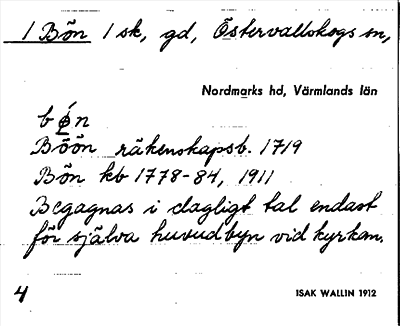 1 Bön 1 sk, gd, Östervallskogs sn,
Nordmarks hd, Värmlands län
bøn
Böön räkenskapsb. 1719
Bön kb 1778-84, 1911
Begagnas i dagligt tal endast
för själva huvudbyn vid kyrkan.
4 ISAK WALLIN 1912